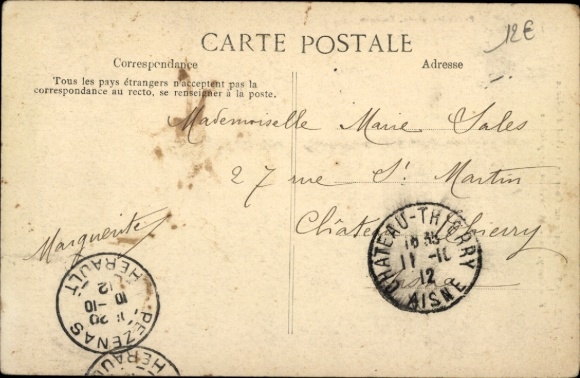 12€
CARTE POSTALE
Correspondance
Adresse
Tous les pays étrangers n'acceptent pas la
correspondance au recto, se renseigner à la poste.
Mademoiselle Marie Sales
27 rue St Martin
Château Thierry
Marguerite
CHATEAU-THIERRY
16 35
11 -10
12
AISNE
PEZENAS
20
10 -10
12
HERAULT
HERAULT